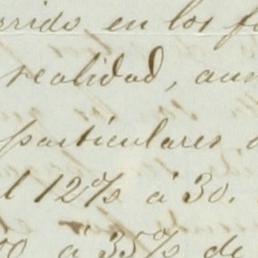 rrido en los f
realidad, aun
particulares
l 12% á 30.
00 á 35% de